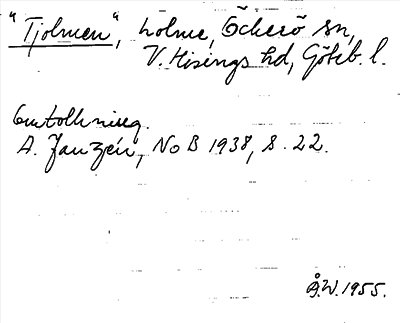 "Tjolmen", holme, Öckerö sn,
V. Hisings hd, Göteb. l.
Omtolkning.
A. Janzén, NoB 1938, s. 22.
Å.W. 1955.